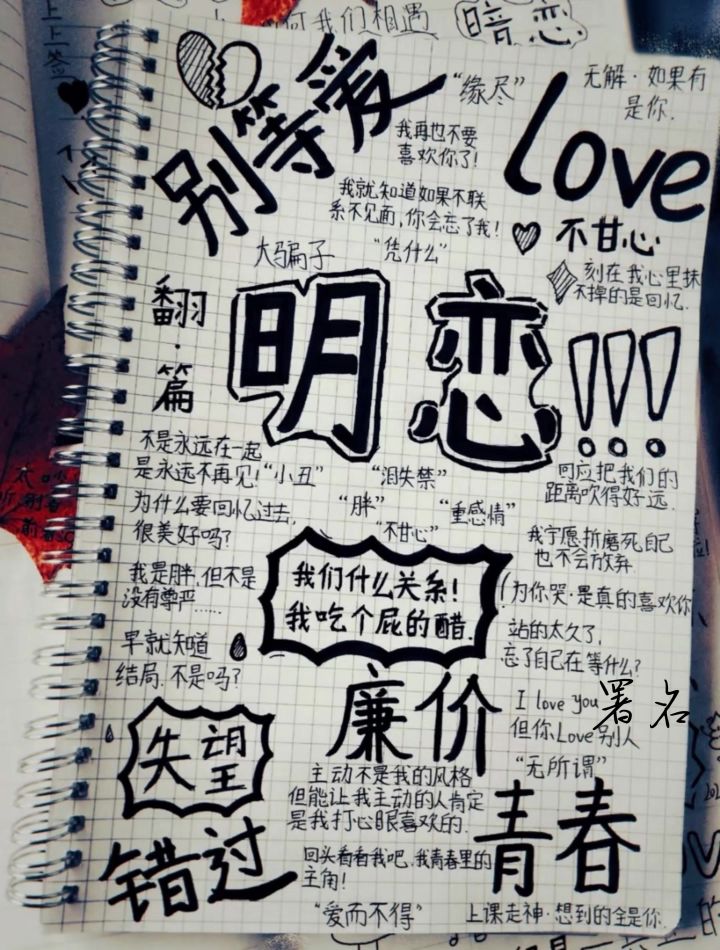 何我们相遇
暗恋
上上签
别等爱
"缘尽"
无解·如果有
是你.
love
我再也不要
喜欢你了!
我就知道如果不联
系不见面,你会忘了我!
不甘心
大骗子
"凭什么"
刻在我心里抹
不掉的是回忆.
翻·篇
明恋!!!
不是永远在一起
是永远不再见!
"小丑"
"泪失禁"
为什么要回忆过去,
很美好吗?
"胖"
"重感情"
"不甘心"
距离吹得好远.
我宁愿折磨死自己
也不会放弃.
我是胖,但不是
没有尊严……
我们什么关系!
我吃个屁的醋.
为你哭·是真的喜欢你
站的太久了,
忘了自己在等什么?
早就知道
结局.不是吗?
廉价
I love you
但你Love别人
署名
"无所谓"
失望
主动不是我的风格
但能让我主动的人肯定
是我打心眼喜欢的.
青春
错过
回头看看我吧,我青春里的
主角!
"爱而不得"
上课走神·想到的全是你.